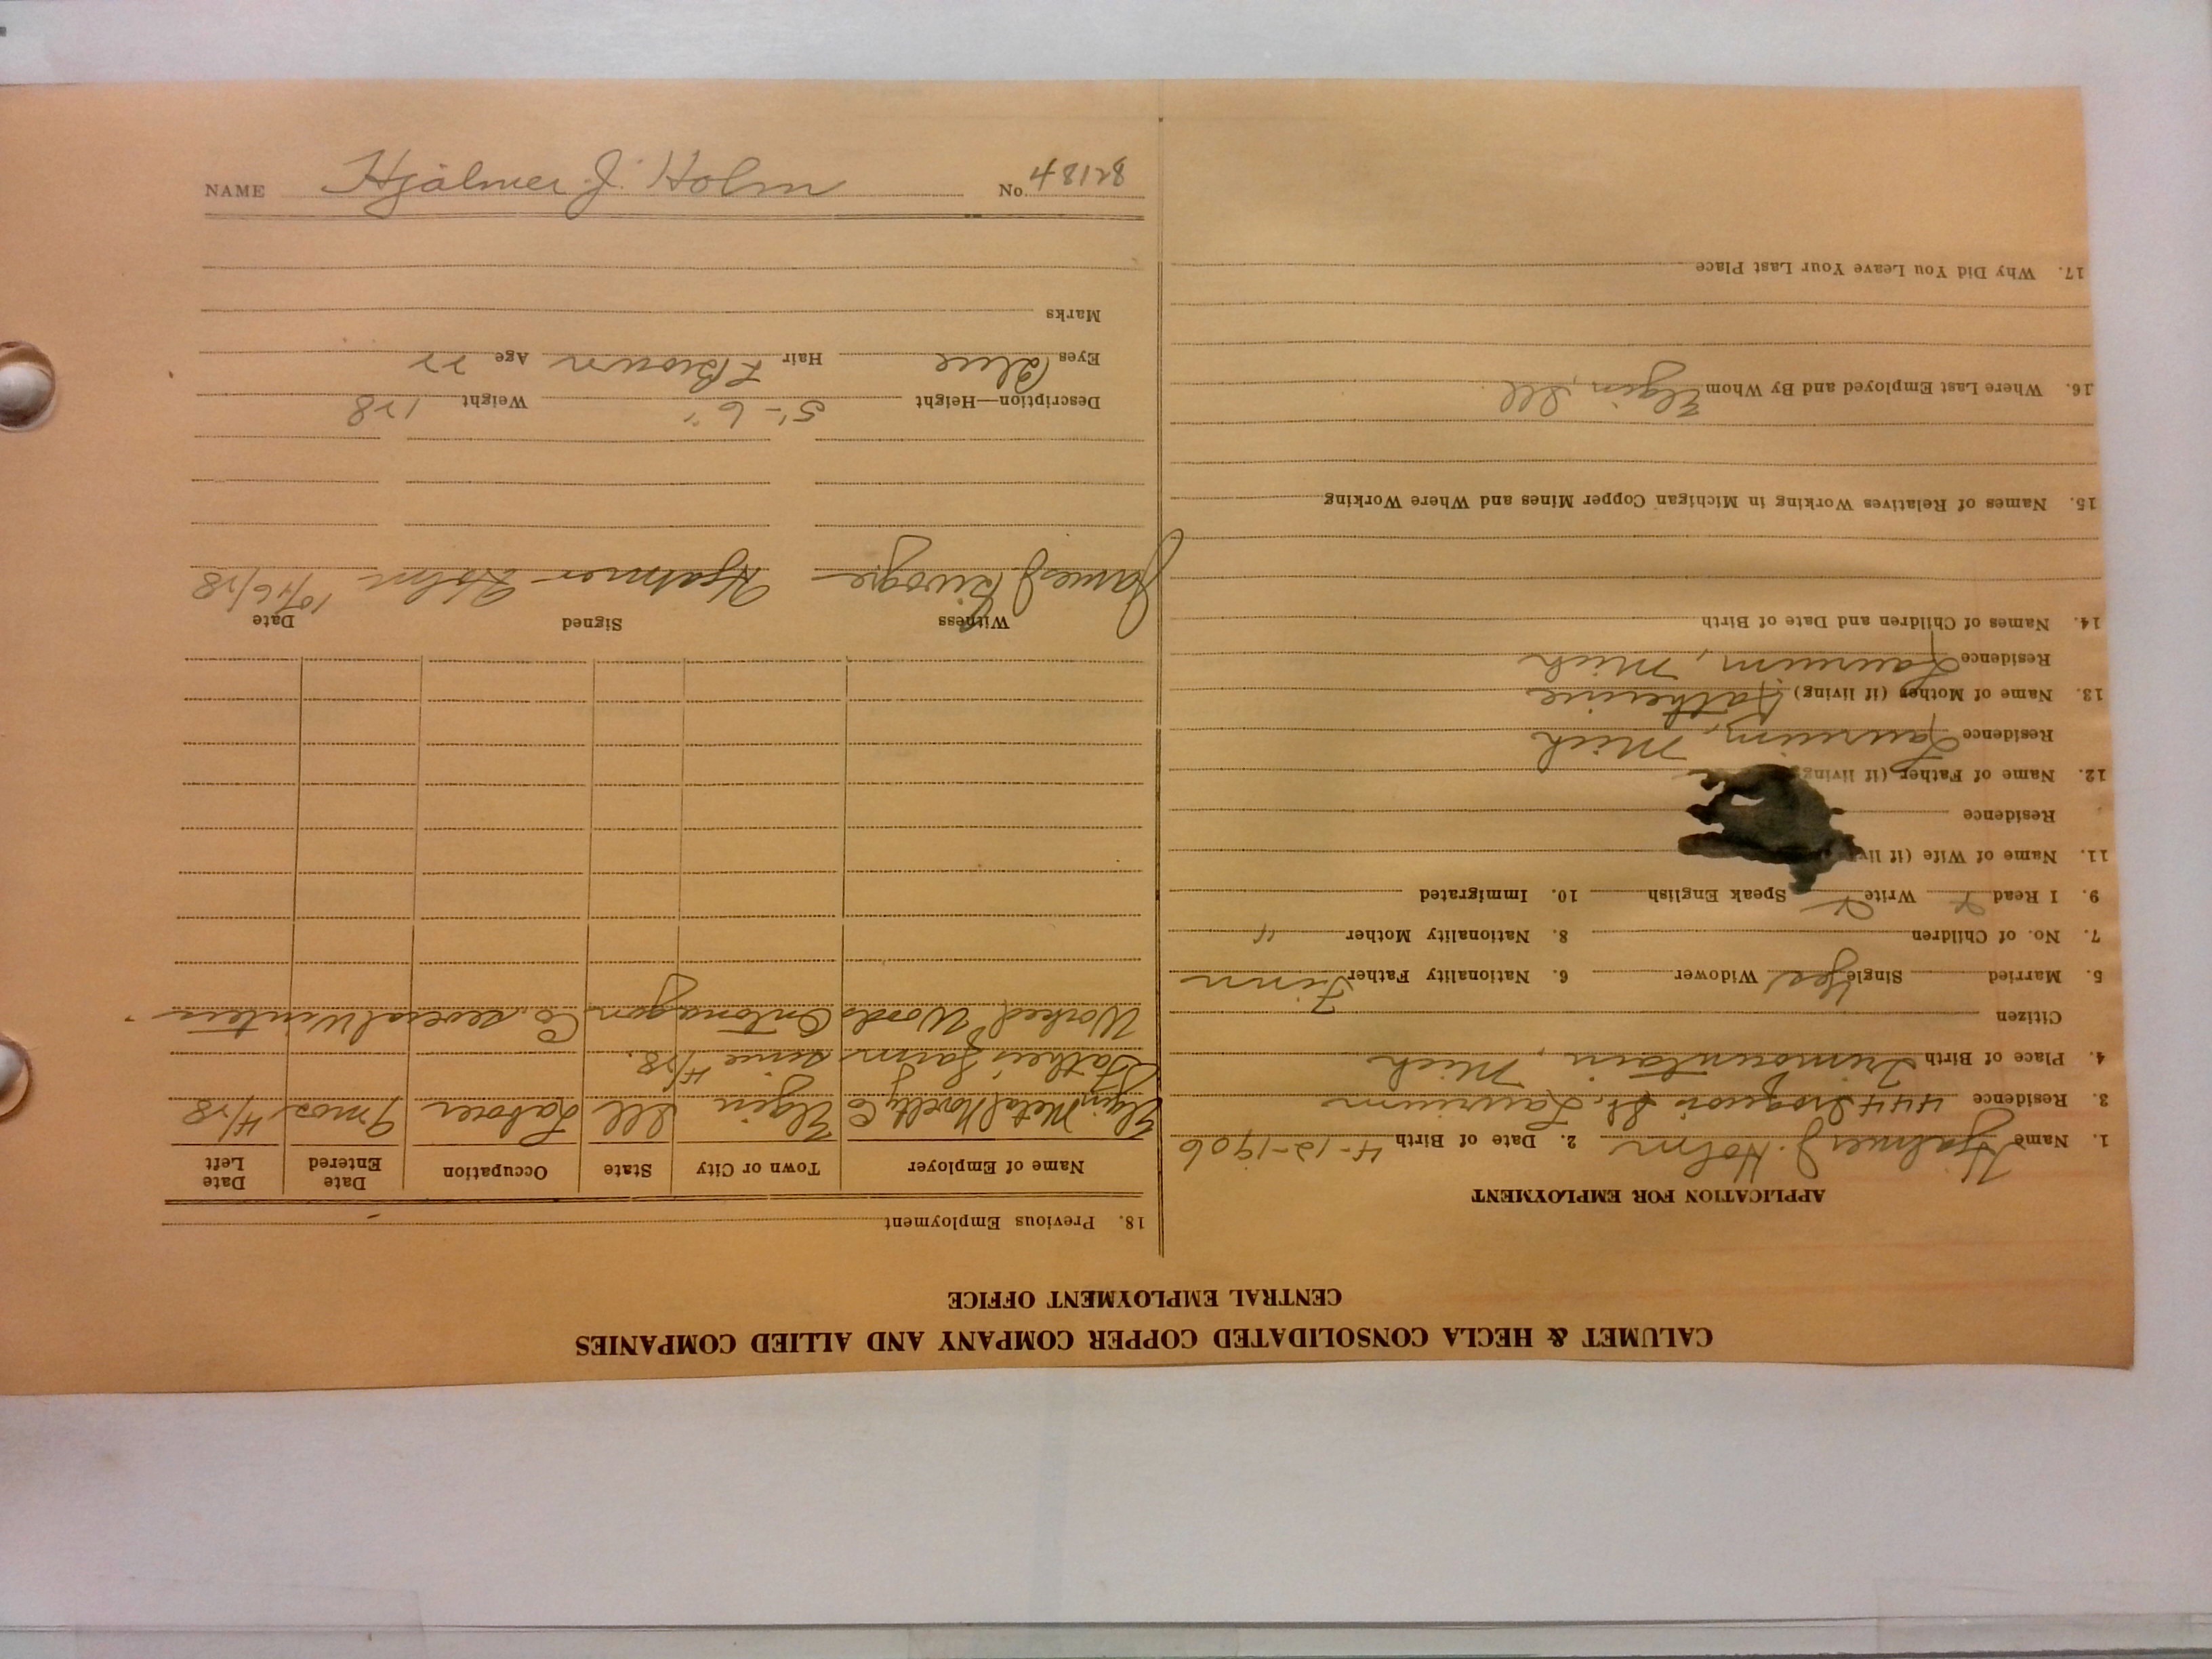 NAME Hjalmer J. Holm No. 48128
CALUMET & HECLA CONSOLIDATED COPPER COMPANY AND ALLIED COMPANIES
CENTRAL EMPLOYMENT OFFICE
APPLICATION FOR EMPLOYMENT
1. Name Hjalmer J. Holm 2. Date of Birth 4-12-1906
3. Residence 444 Iroquois St. Laurium
4. Place of Birth Trimountain, Mich
Citizen
5. Married Single Yes Widower 6. Nationality Father Finn
7. No. of Children 8. Nationality Mother "
9. I Read Write Speak English 10. Immigrated
11. Name of Wife (if liv
Residence
12. Name of Father (if living
Residence Laurium, Mich
13. Name of Mother (if living) Katherine
Residence Laurium, Mich
14. Names of Children and Date of Birth
15. Names of Relatives Working in Michigan Copper Mines and Where Working
16. Where Last Employed and By Whom Elgin, Ill.
17. Why Did You Leave Your Last Place
18. Previous Employment
Name of Employer Town or City State Occupation Date Entered Date Left
Elgin Metal Novelty Co Elgin Ill Laborer 9 mos 4/28
Father's Farm since 4/28.
Worked Woods Ontonagon Co. several winters.
Witness Signed Date
James J. Hjalmer Holm 10/16/28
Description—Height 5'-6" Weight 128
Eyes Blue Hair L Brown Age 22
Marks